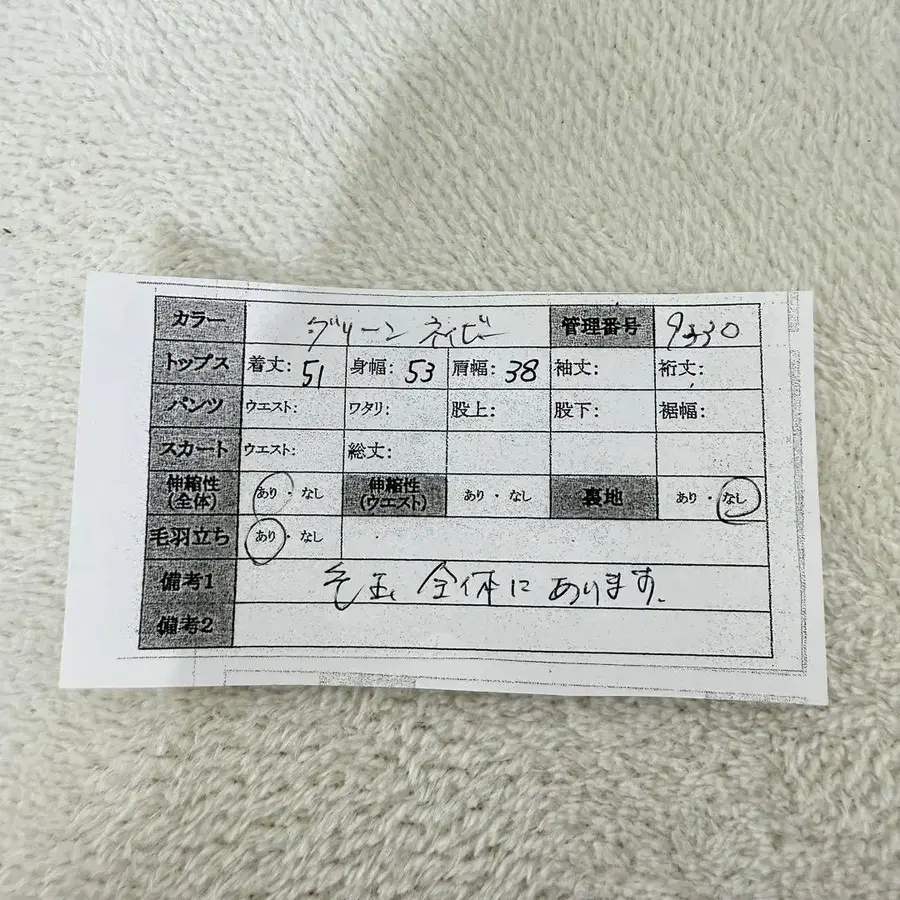 カラー グリーン ネイビー 管理番号 9330
トップス 着丈: 51 身幅: 53 肩幅: 38 袖丈: 裄丈:
パンツ ウエスト: ワタリ: 股上: 股下: 裾幅:
スカート ウエスト: 総丈:
伸縮性(全体) あり・なし 伸縮性(ウエスト) あり・なし 裏地 あり・なし
毛羽立ち あり・なし
備考1 毛玉 全体にあります。
備考2